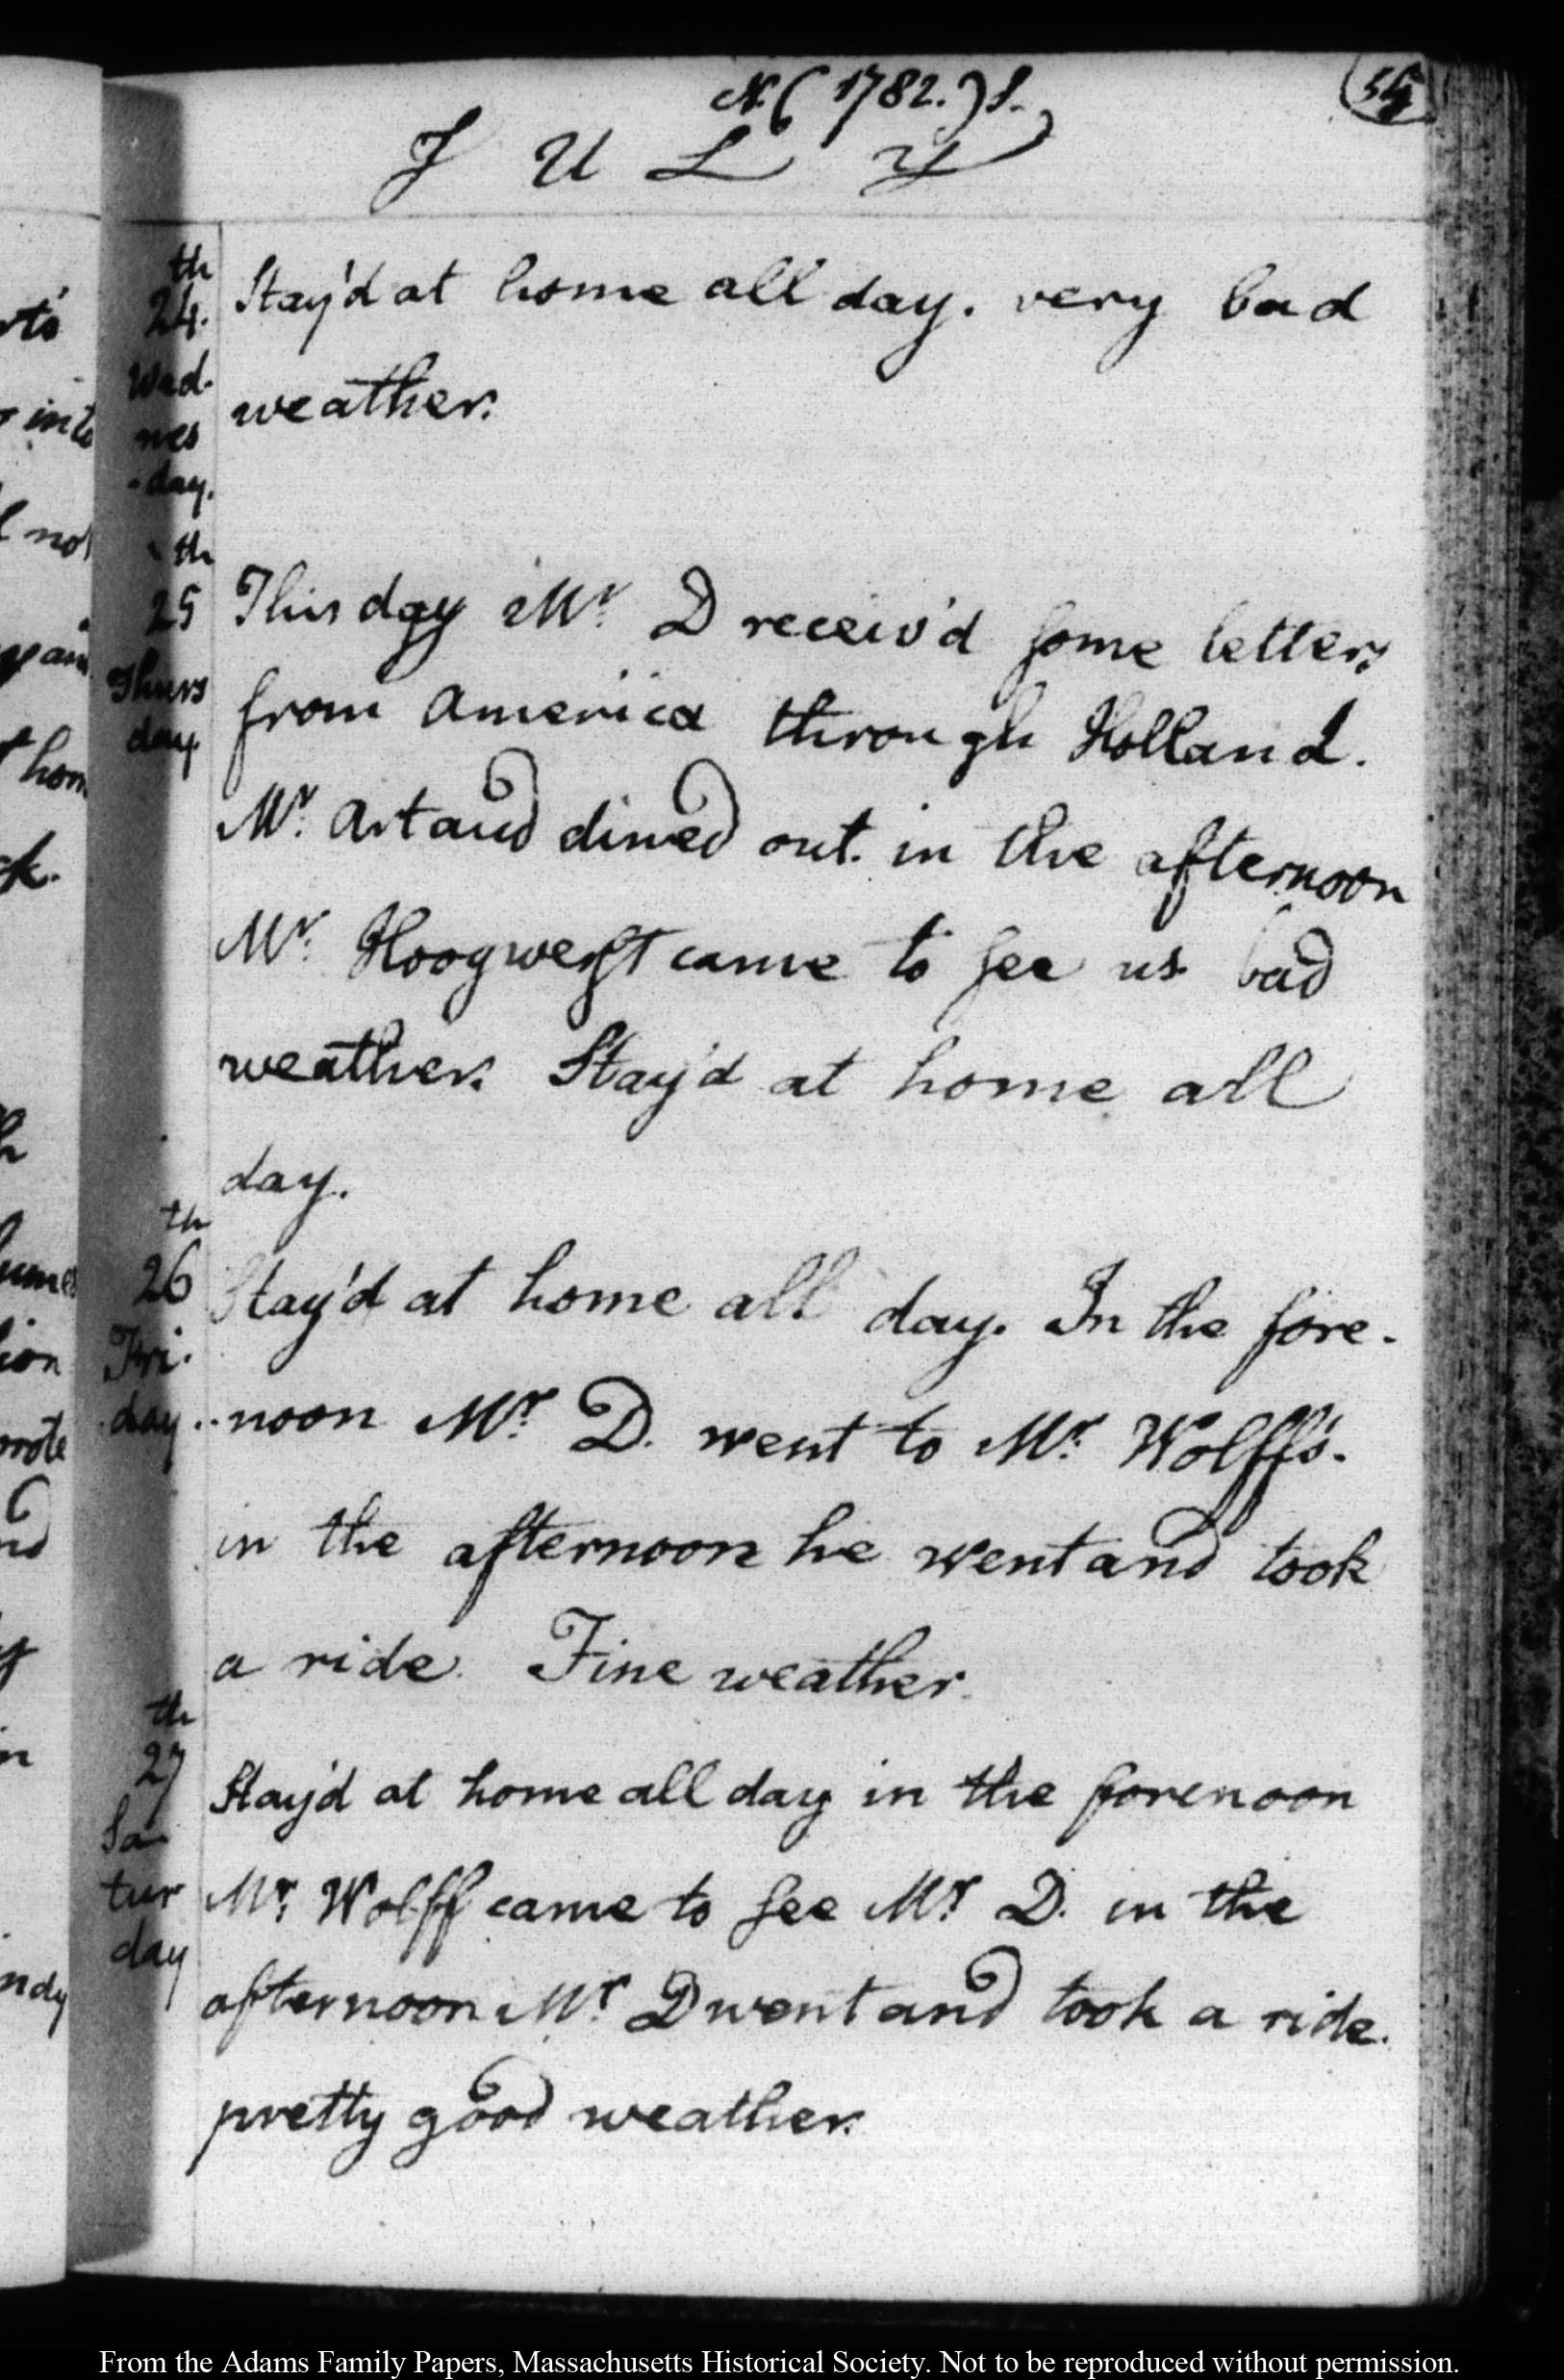 N. (1782.) S.
JULY
th
24. Stay'd at home all day. very bad
Wed-
nes weather.
-day.
th
25 This day Mr. D receiv'd some letters
Thurs from America through Holland.
day.
Mr. Artaud dined out. in the afternoon
Mr. Hoogwerft came to see us bad
weather. Stay'd at home all
day.
th
26 Stay'd at home all day. In the fore-
Fri-
day. noon Mr. D. went to Mr. Wolff's.
in the afternoon he went and took
a ride. Fine weather.
th
27 Stay'd at home all day in the forenoon
Sa
tur Mr. Wolff came to see Mr. D. in the
day
afternoon Mr. D went and took a ride.
pretty good weather.
From the Adams Family Papers, Massachusetts Historical Society. Not to be reproduced without permission.